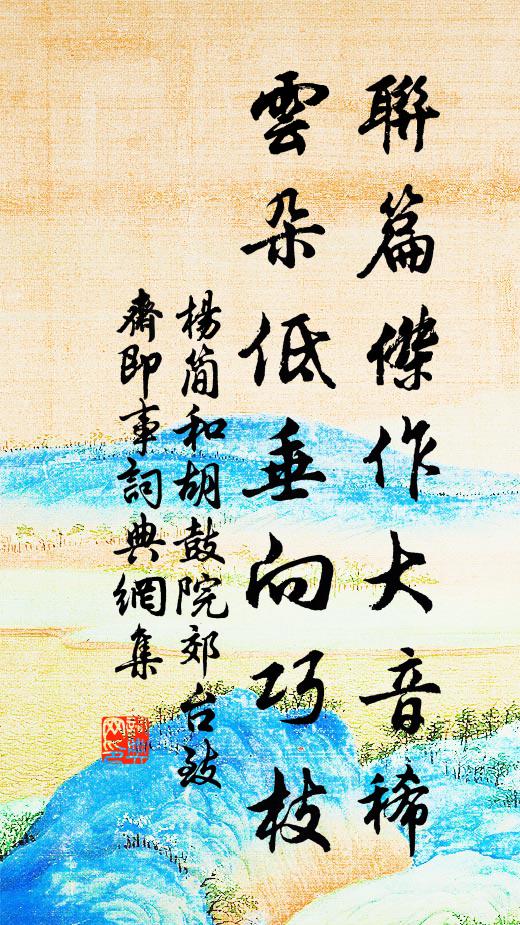 聯篇傑作大音稀
雲朵低垂向巧枝
楊简和胡鼓院郊台致
齋即事詞典網集